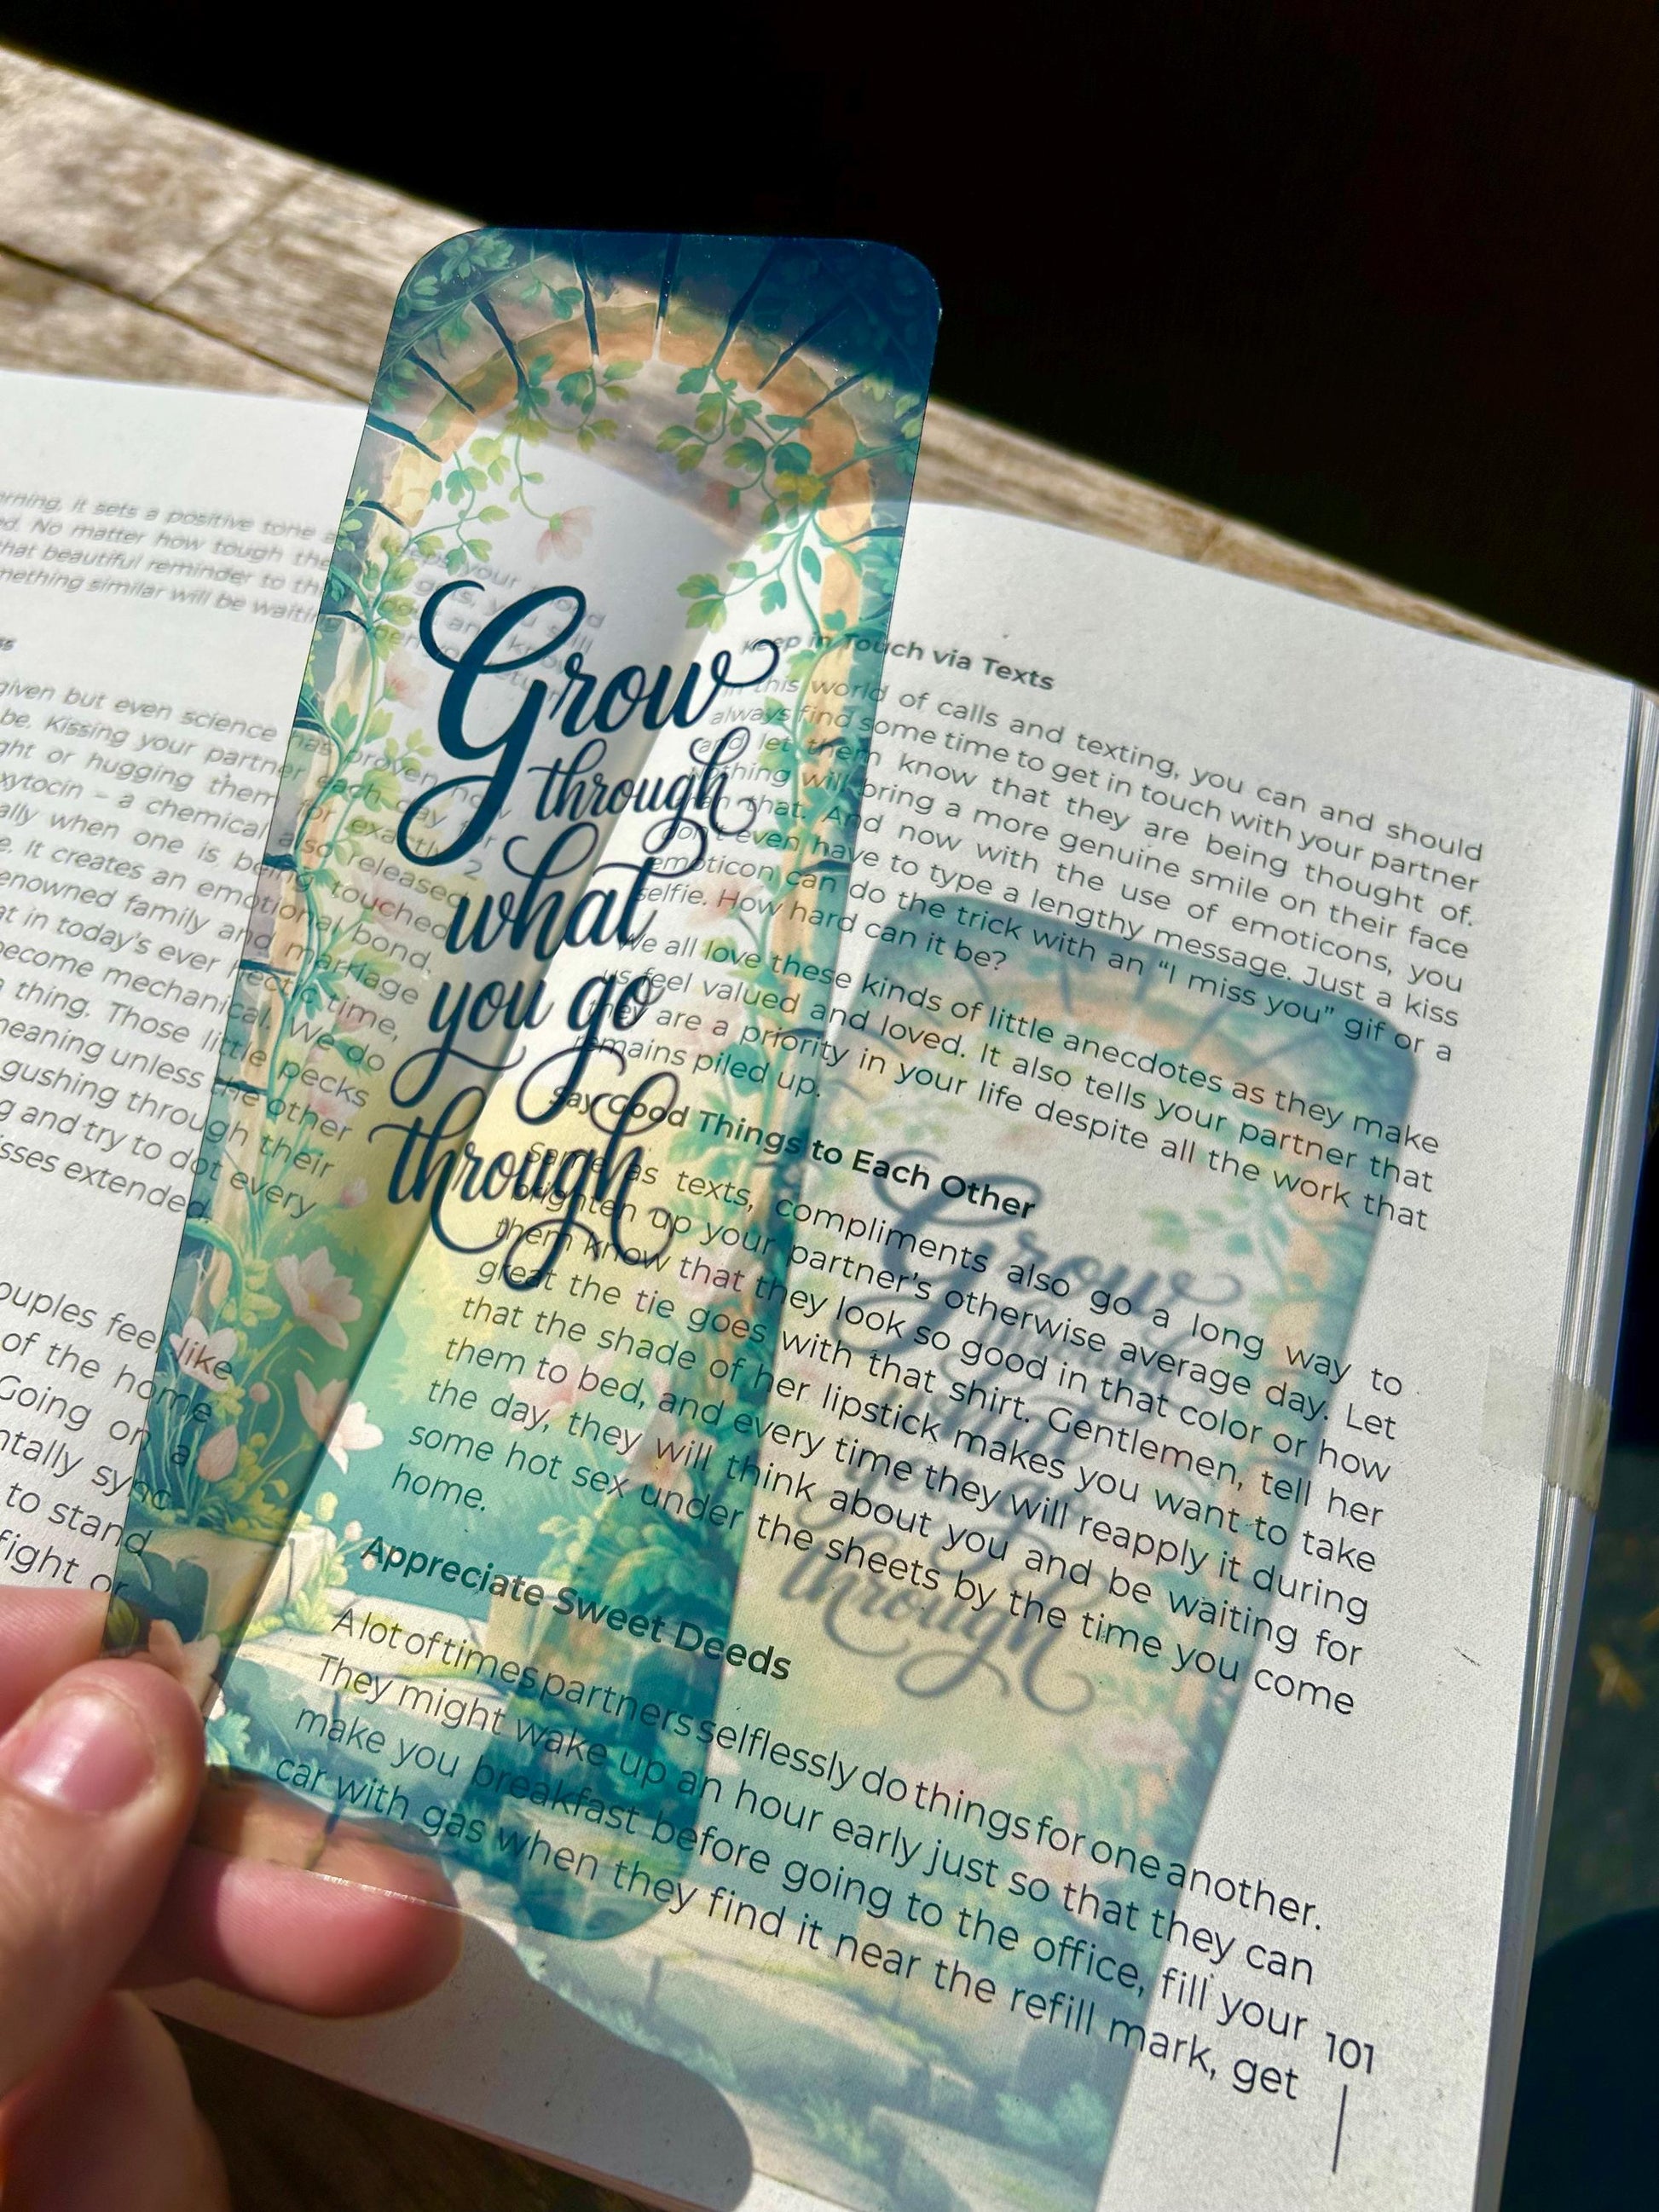 Grow
through
what
you go
through
orning, it sets a positive tone
ed. No matter how tough the
that beautiful reminder to
mething similar will be waiting when
ss
given but even science has proven
be. Kissing your partner each day for
ght or hugging them for exactly 2
xytocin – a chemical also released
ally when one is being touched
e. It creates an emotional bond.
enowned family and marriage
at in today's ever hectic time,
become mechanical. We do
thing. Those little pecks
meaning unless the other
gushing through their
g and try to dot every
sses extended.
ouples feel like
of the home
Going on a
ntally sync
to stand
fight or
Keep in Touch via Texts
In this world of calls and texting, you can and should
always find some time to get in touch with your partner
and let them know that they are being thought of.
Nothing will bring a more genuine smile on their face
than that. And now with the use of emoticons, you
don't even have to type a lengthy message. Just a kiss
emoticon can do the trick with an “I miss you” gif or a
selfie. How hard can it be?
We all love these kinds of little anecdotes as they make
us feel valued and loved. It also tells your partner that
they are a priority in your life despite all the work that
remains piled up.
Say Good Things to Each Other
Same as texts, compliments also go a long way to
brighten up your partner's otherwise average day. Let
them know that they look so good in that color or how
great the tie goes with that shirt. Gentlemen, tell her
that the shade of her lipstick makes you want to take
them to bed, and every time they will reapply it during
the day, they will think about you and be waiting for
some hot sex under the sheets by the time you come
home.
Appreciate Sweet Deeds
A lot of times partners selflessly do things for one another.
They might wake up an hour early just so that they can
make you breakfast before going to the office, fill your
car with gas when they find it near the refill mark, get
101
Grow
through